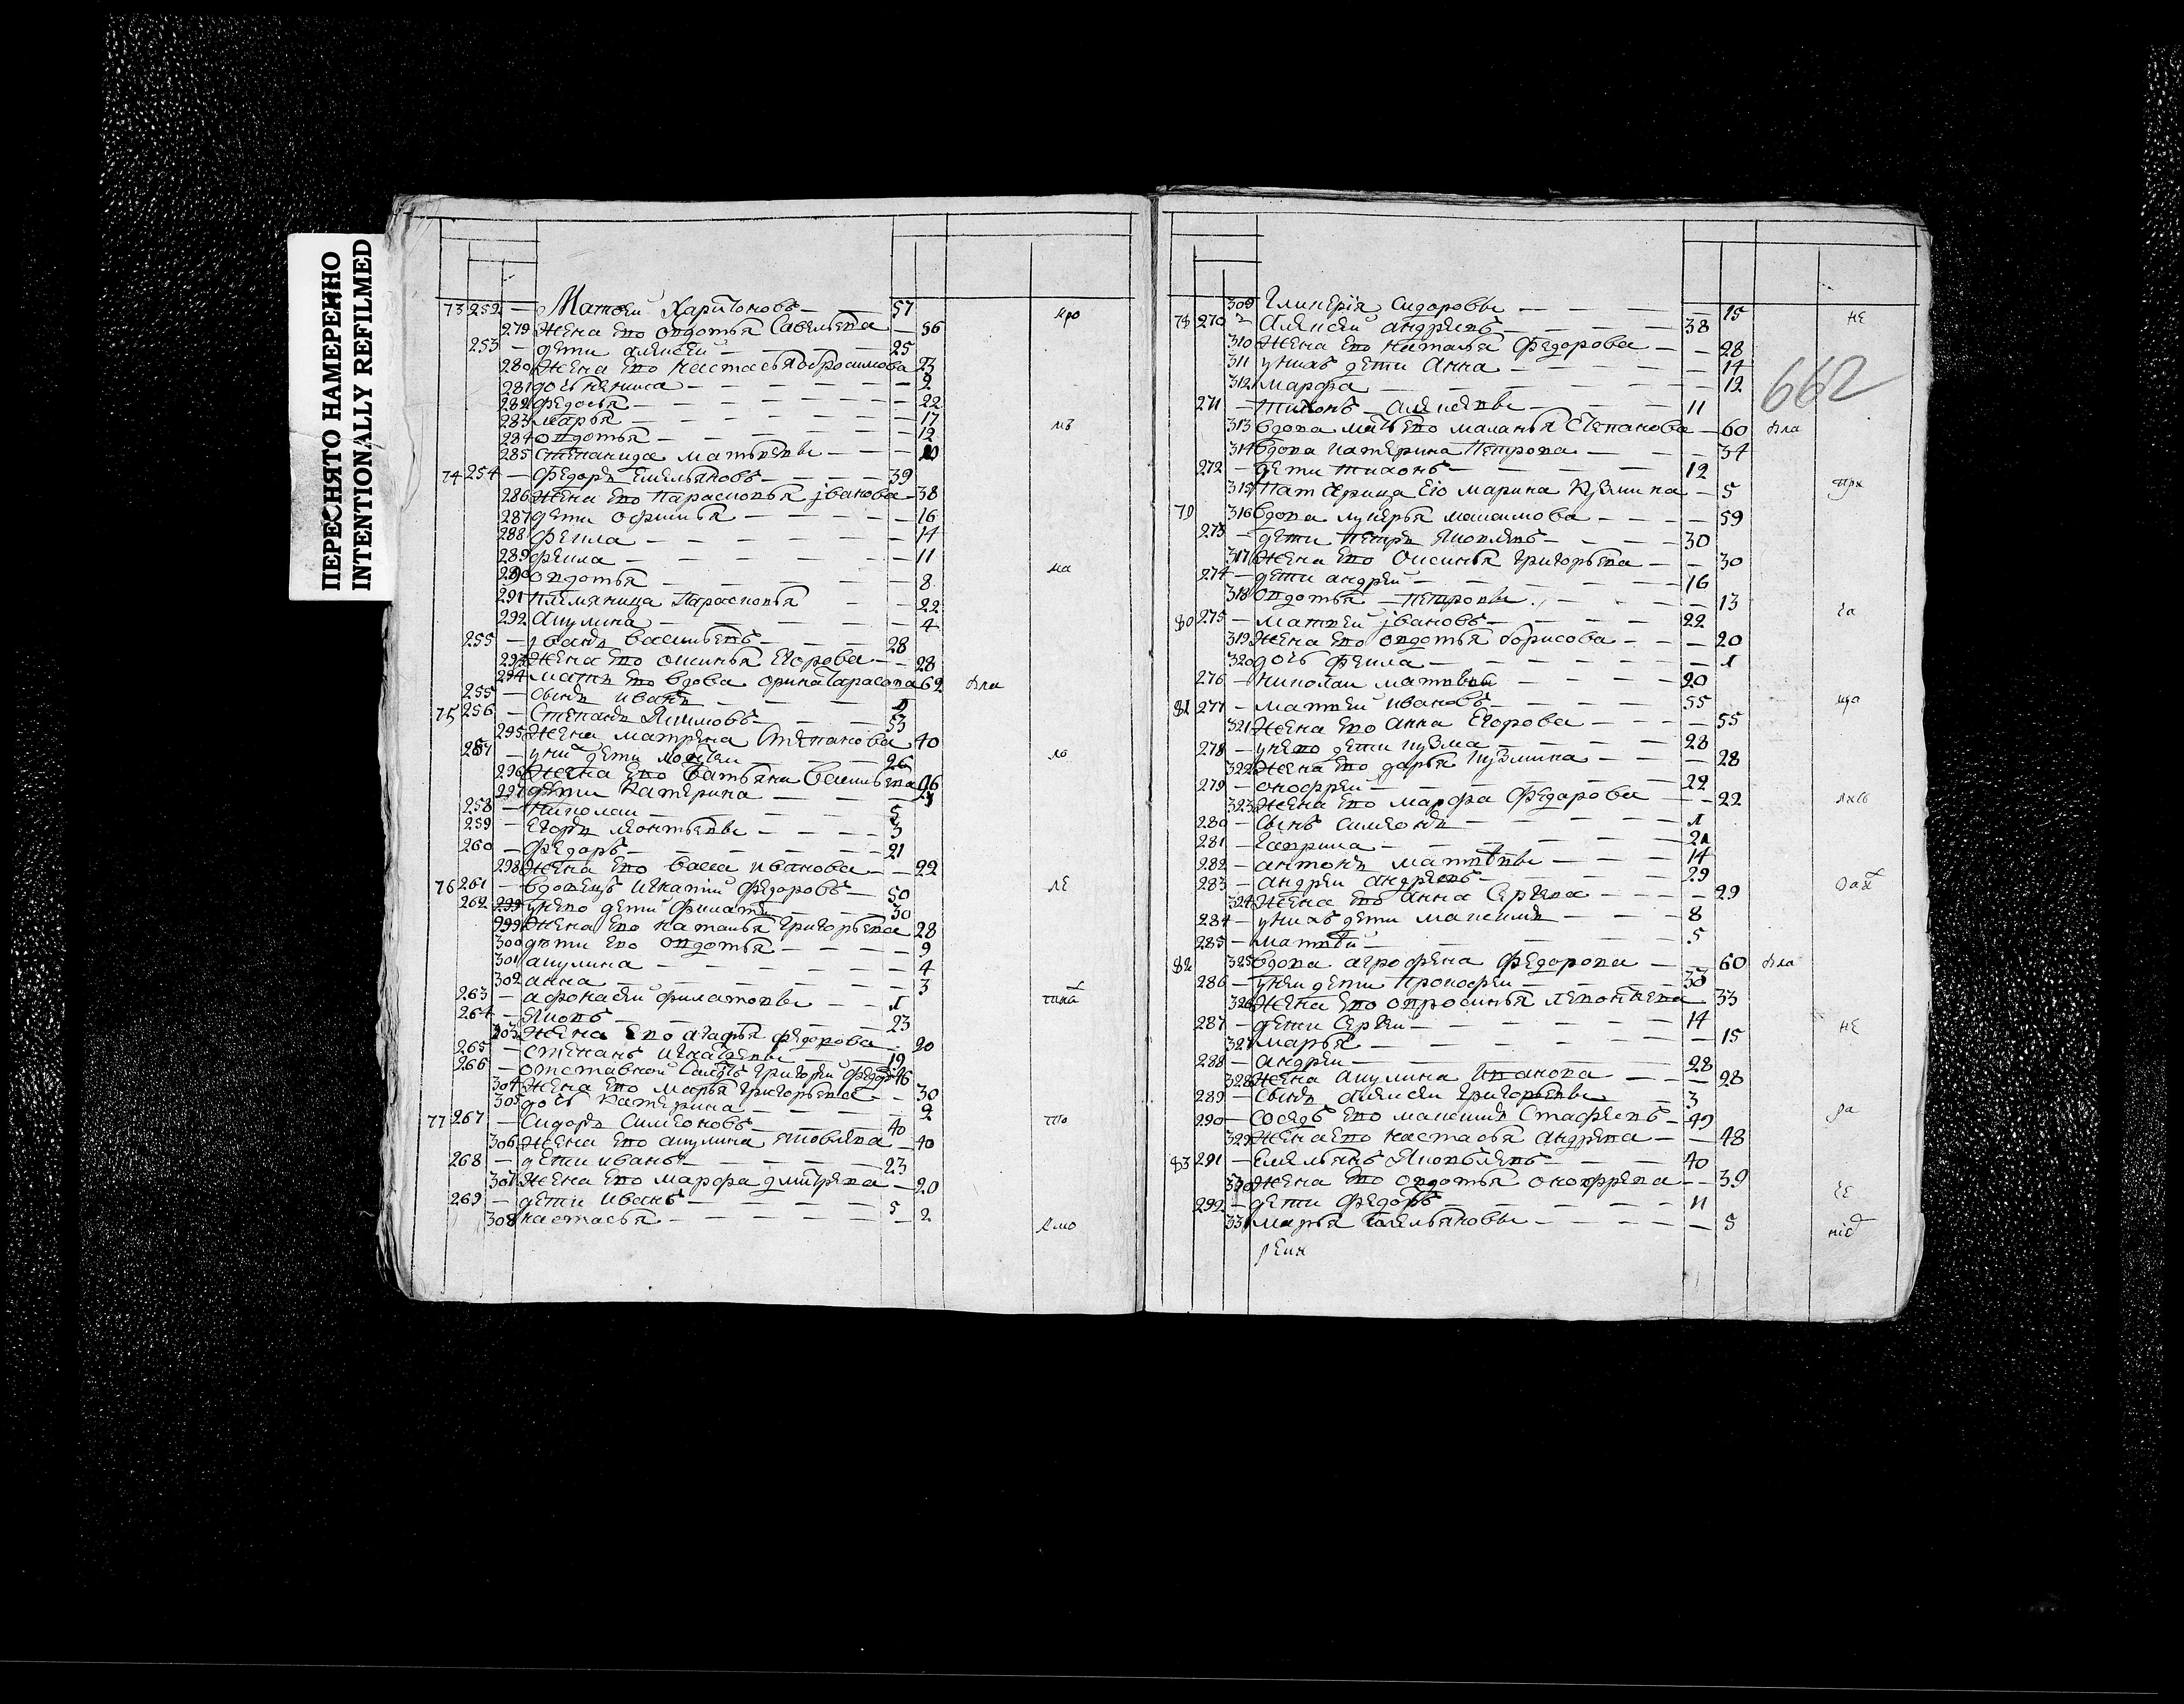 ПЕРЕСНЯТО НАМЕРЕННО
INTENTIONALLY REFILMED
73 252 — Матѳеи Харитоновъ — 57
279 Жена Ево овдотья Савельева — 56
253 — дети алексеи — 25
280 Жена Ево настасья 23
281 дочь 2
282 Федосья — 22
283 марья — 17
284 овдотья — 12
285 степанида матвевы — 10
74 254 — Федоръ Емельяновъ — 39
286 Жена Ево Парасковья јванова — 38
287 дети офимья — 16
288 фекла — 14
289 фекла — 11
290 овдотья — 8
291 племяница Парасковья — 22
292 Акулина — 4
255 — јванъ васильевъ — 28
293 Жена Ево оксинья Егорова — 28
294 мать Ево вдова орина тарасова 62
255 — сынъ иванъ
75 256 — Степанъ Якимовъ — 53
295 Жена матрена Степанова 40
257 — у них дети 26
296 Жена Ево татьяна васильева 26
297 дети Катерина
258 — Николаи — 5
259 — Егоръ леонтьевы — 3
260 — Федоръ — 21
298 Жена Ево васса иванова — 22
76 261 — вдовецъ игнатии Федоровъ — 50
262 — у нево дети Филатъ — 30
299 Жена Ево наталья Григорьева 28
300 дети Ево овдотья — 9
301 акулина — 4
302 анна — 3
263 — афонасеи филатовы — 1
264 — Яковъ — 23
303 Жена Ево агафья федорова 20
265 — степанъ игнатьевы — 19
266 — отставнои салдатъ Григореи 46
304 Жена Ево марья Григорьева — 30
305 дочь Катерина — 2
77 267 — Сидоръ Симеоновъ — 40
306 Жена Ево акулина яковлева — 40
268 — дети иванъ — 23
307 Жена Ево марфа дмитрева — 20
269 — дети Иванъ — 5
308 настасья — 2
309 Гликерія Сидоровы — 15
78 270 — Алексеи андреевъ — 38
310 Жена Ево наталья Федорова — 28
311 у нихъ дети Анна — 14
312 марфа — 12
271 — тихонъ алексевы — 11
313 вдова мать Ево маланья Степанова — 60
314 вдова катерина Петрова — 34
272 — дети тихонъ — 12
315 Патчерица Ево марина Кузмина — 5
79 316 вдова лукерья максимова — 59
273 — дети Петръ Яковлевъ — 30
317 Жена Ево оксинья Григорьева — 30
274 — дети андреи — 16
318 овдотья Петровы — 13
80 275 — матвеи јвановъ — 22
319 Жена Ево овдотья борисова — 20
320 дочь фекла — 1
276 — николаи матвевы — 20
81 277 — матвеи ивановъ — 55
321 Жена Ево анна Егорова — 55
278 — у нево дети кузма — 28
322 Жена Ево дарья Кузмина — 28
279 — онофреи — 22
323 Жена Ево марфа Федарова — 22
280 — сынъ симеонъ — 1
281 — гаврила — 21
282 — антонъ матвевы — 14
283 — андреи андреевъ — 29
324 Жена Ево анна Сергева — 29
284 — у нихъ дети максимъ — 8
285 — матвеи — 5
82 325 вдова агрофена Федорова — 60
286 — у неи дети Прокофеи — 33
326 Жена Ево опросинья левонтьева 33
287 — дети Сергеи — 14
327 марья — 15
288 — андреи — 28
328 Жена акулина иванова — 28
289 — сынъ алексеи Григорьевы — 3
290 — сосѣдъ Ево максимъ Стафеевъ — 49
329 Жена Ево настасья андрева — 48
83 291 — Емельянъ Яковлевъ — 40
330 Жена Ево овдотья онофрева — 39
292 — дети Федоръ — 11
331 марья Емельяновы — 5
662